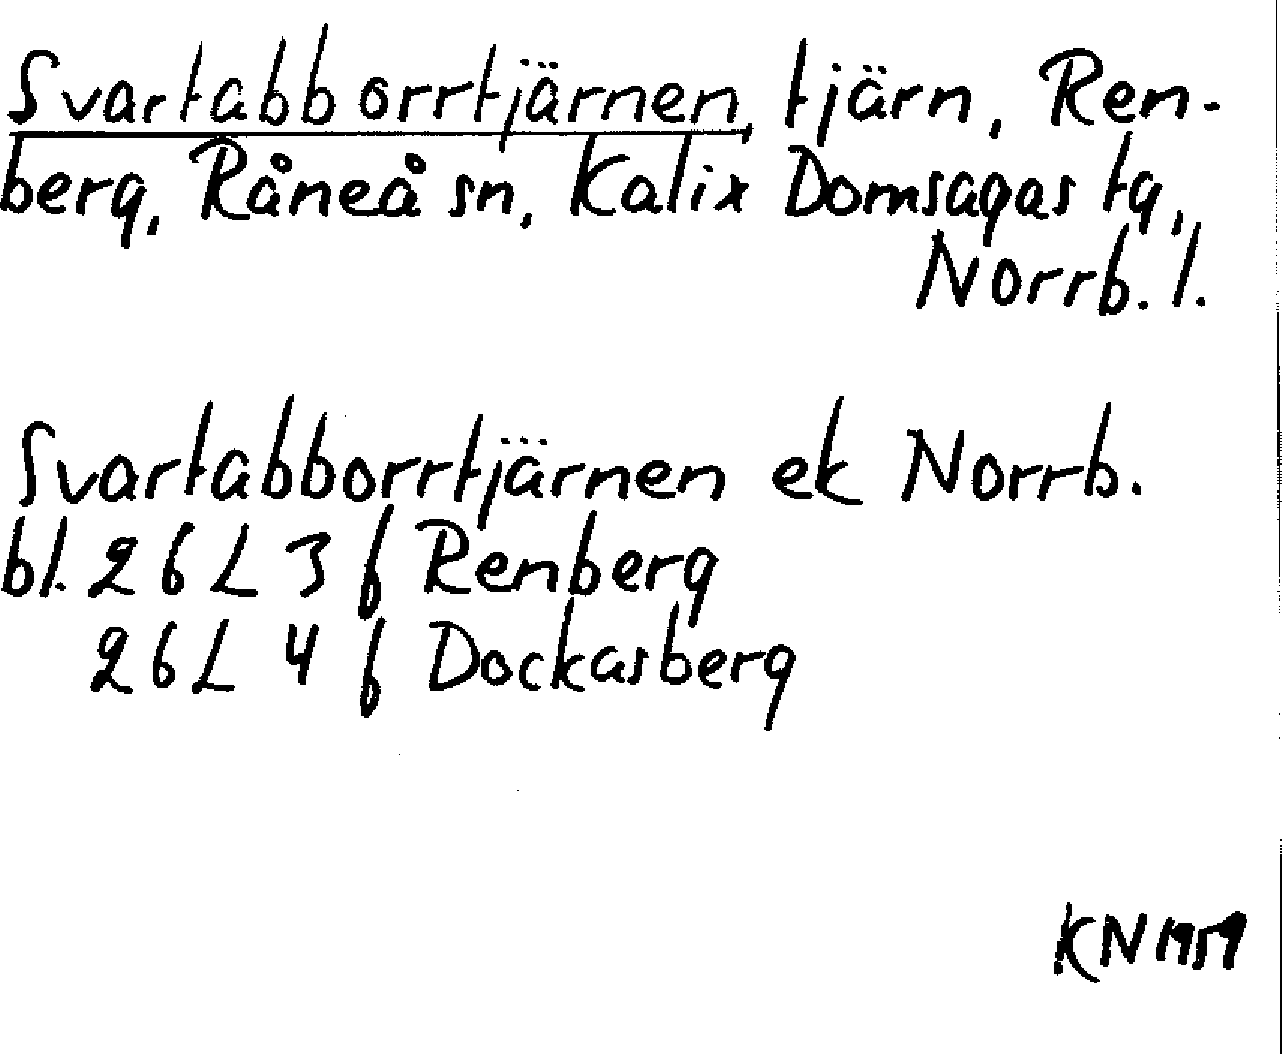 Svartabborrtjärnen, tjärn, Ren-
berg, Råneå sn, Kalix Domsagas tg,
Norrb. l.
Svartabborrtjärnen ek Norrb.
bl. 26 L 3 f Renberg
26 L 4 f Dockasberg
KN 1959